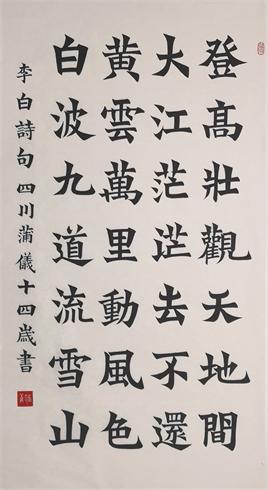 登高壯觀天地間
大江茫茫去不還
黃雲萬里動風色
白波九道流雪山
李白詩句四川蒲儀十四歲書